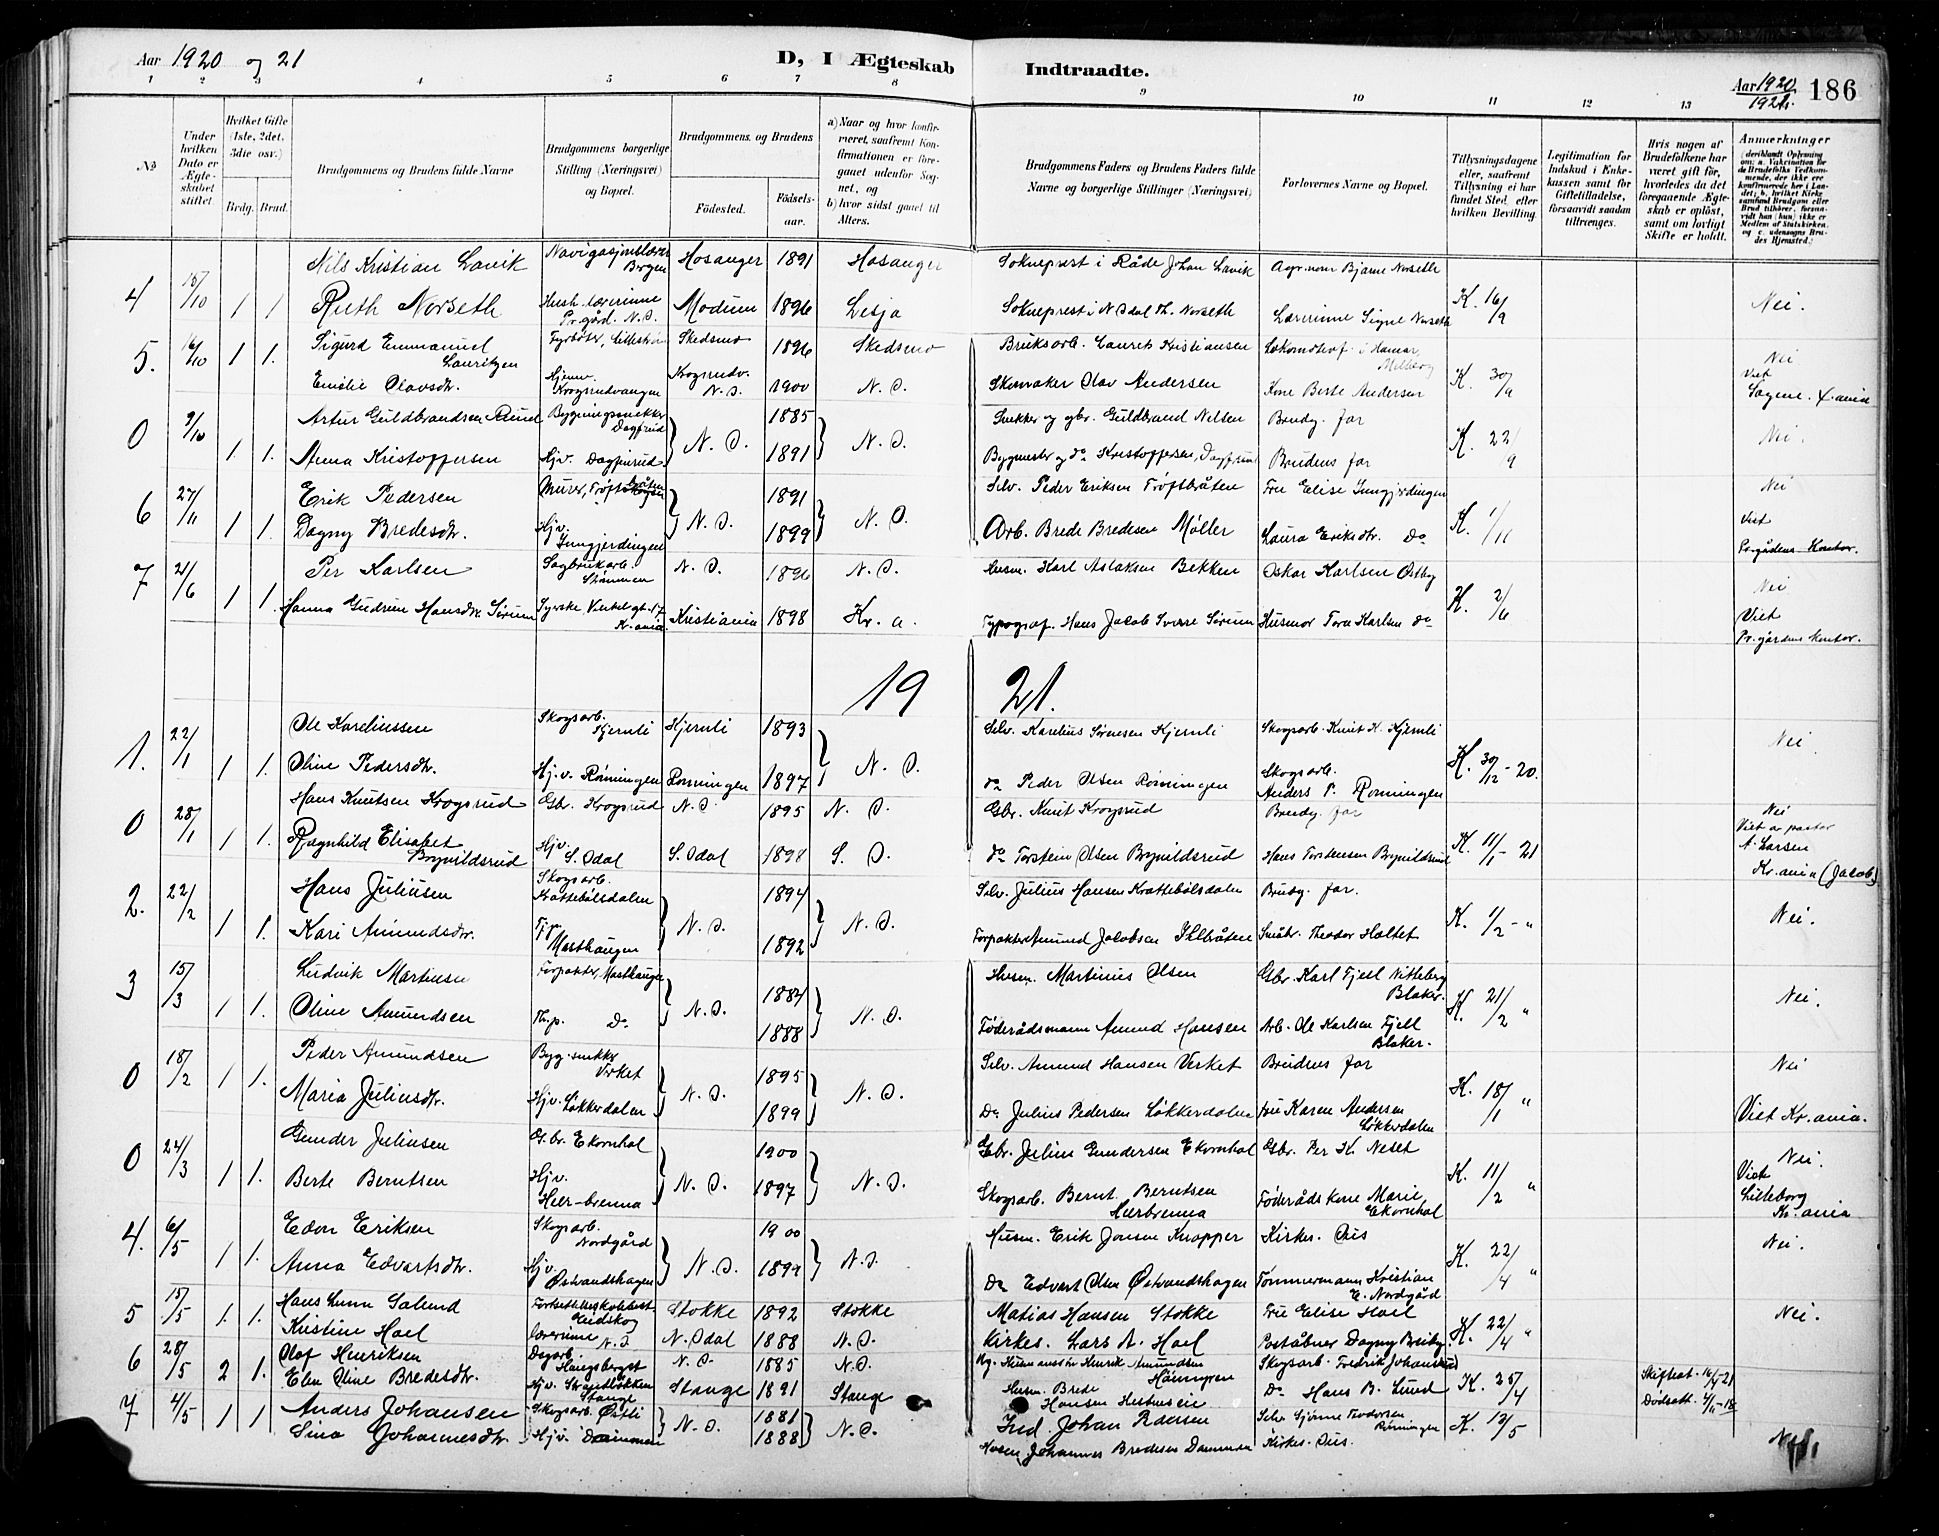 Aar 1920 og 21
D, I Ægteskab Indtraadte.
Aar 1920
1921.
186
1 2 3 4 5 6 7 8 9 10 11 12 13
No
Under hvilken Dato er Ægteskabet stiftet.
Hvilket Gifte (1ste, 2det, 3die osv.)
Brdg. Brud.
Brudgommens og Brudens fulde Navne
Brudgommens borgerlige Stilling (Næringsvei) og Bopæl.
Brudgommens og Brudens
Födested.
Födsels-aar.
a) Naar og hvor konfirmeret, saafremt Konfirmationen er foregaaet udenfor Sognet, og
b) hvor sidst gaaet til Alters.
Brudgommens Faders og Brudens Faders fulde Navne og borgerlige Stillinger (Næringsvei)
Forlovernes Navne og Bopæl.
Tillysningsdagene eller, saafremt Tillysning ei har fundet Sted, efter hvilken Bevilling.
Legitimation for Indskud i Enkekassen samt for Giftetilladelse, forsaavidt saadan tiltrænges.
Hvis nogen af Brudefolkene har været gift før, hvorledes da det foregaaende Ægteskab er oplöst, samt om lovligt Skifte er holdt.
Anmærkninger
(deriblandt Oplysning om: a. Vakcination for de Brudefolks Vedkommende, der ikke ere konfirmerede her i Landet; b. hvilket Kirkesamfund Brudgom eller Brud tilhörer, forsaavidt han (hun) ikke er Medlem af Statskirken, og c. udensogns Brudes Hjemsted.)
Nils Kristian Lavik Navigasjonslærer Bergen Hosanger 1891 Hosanger Sokneprest i Råde Johan Lavik Agronom Bjarne Norseth
4 15/10 1 1 Ruth Norseth Hush. lærerinne Pr.gård. N.O. Modum 1896 Lesja Sokneprest i N. Odal Th. Norseth Lærerinne Signe Norseth K. 16/9 Nei.
5. 16/10 1 1. Sigurd Emmanuel Lauritzen Fyrbøter, Lillestrøm Skedsmo 1896 Skedsmo Bruksarb. Laurits Kristiansen Lokomotivf. i Hamar, Nei
Emilie Olavsdtr. Hjemv. Krogsrudvangen Krogsrudv. N.O. 1900 N.O. Skomaker Olav Andersen Kone Berte Andersen K. 30/9 Viet Sagene. X.ania
0 9/10 1. 1. Artur Guldbrandsen Ruud Bygningssnekker Dagfinrud N.O. 1885 N.O. Snekker og gbr. Guldbrand Nelsen Brudg. far K. 22/9 Nei.
Anna Kristoffersen Hjv. Dagfinrud 1891 Bygmester og do Kristoffersen, Dagfinrud Brudens far
6 27/11 1 1. Erik Pedersen Murer, Trøftbråten N.O. 1891 N.O. Selv. Peder Eriksen Trøftbråten Fru Elise Jungjerdingen Nei
Dagny Bredesdtr. Hjv. Jungjerdingen 1899 Arb. Brede Bredesen Møller Laura Eriksdtr. do K. 1/11 Viet Pr.gårdens Kontor.
7 21/6 1 1. Per Karlsen Sagbruksarb. Strømmen N.O. 1896 N.O. Husm. Karl Aslaksen Bekken Oskar Karlsen Østby K. 2/6 Nei
Hanna Gudrun Hansdtr. Sørum Kr.ania. Kristiania 1898 Kr.a. Typograf. Hans Jacob Sverre Sørum Husmor Tora Karlsen do Viet Pr.gårdens Kontor.
19 21.
1. 22/1 1 1. Ole Kareliussen Skogsarb. Kjernli Kjernli 1893 N.O. Selv. Karelius Sørensen Kjernli Skogsarb. Knut K. Kjernli K. 30/12 - 20. Nei
Oline Pedersdtr. Hj.v. Rønningen Rønningen 1897 do Peder Olsen Rønningen Skogsarb. Anders P. Rønningen
0 28/1 1 1. Hans Knutsen Krogsrud Gbr. Krogsrud N.O. 1895 N.O. Gbr. Knut Krogsrud Brudg. far Nei
Ragnhild Elisabet Brynildsrud Hjv. S. Odal S. Odal 1898 S.O. do Torstein Olsen Brynildsrud Hans Torstensen Brynildsrud K. 11/1 - 21 Viet a pastor A. Larsen Kr.ania (Jacob)
2. 22/2 1 1. Hans Juliusen Skogsarb. Krattebølsdalen N.O. 1894 N.O. Selv. Julius Hansen Krattebølsdalen Brudg. far. K. 1/2 - " Nei.
Kari Amundsdtr. Masthaugen 1892 Forpakter Amund Jacobsen Ihlbråten Småbr. Theodor Holtet
3 15/3 1 1. Ludvik Martinsen Forpakter, Masthaugen N.O. 1884 N.O. Husm. Martinius Olsen Gbr. Karl Fjell Nitteberg Blaker. K. 21/2 " Nei.
Oline Amundsen Do 1888 Føderådsmann Amund Hansen Arb. Ole Karlsen Fjell Blaker.
0 18/2 1 1. Peder Amundsen Byg. snekker Verket N.O. 1895 N.O. Selv. Amund Hansen Verket Brudens far K. 18/1 " Nei
Maria Juliusdtr. Hjv. Løkkerdalen 1899 Do Julius Pedersen Løkkerdalen Fru Karen Andersen Løkkerdalen Viet Kr.ania.
0 24/3 1 1. Gunder Juliusen G.br. Ekornhol N.O. 1900 N.O. Gbr. Julius Gundersen Ekornhol Gbr. Per K. Neset K. 11/2 " Nei.
Berte Berntsen Hjv. Herr-brenna 1897 Skogsarb. Bernt Berntsen Herrbrenna Føderådskone Marie Ekornhol Viet Lilleborg Kr.ania
4. 6/5 1 1. Edon Eriksen Skogsarb. Nordgård N.O. 1900 N.O. Husm. Erik Jonsen Knapper Kirkes. Ous K. 22/4 " Nei.
Anna Edvartsdtr. Hjv. Østvandshagen 1899 Do Edvart Olsen Østvandshagen Tømmermann Kristian E. Nordgård
5 15/5 1. 1. Hans Lunn Solund Eidskog Stokke 1892 Stokke Matias Hansen Stokke Fru Elise Hoel K. 22/4 " Nei.
Kristine Hoel lærerinne N.O. N. Odal 1888 N.O. Kirkes. Lars A. Hoel Poståbner Dagny Breiby
6 28/5 2 1. Olaf Henriksen Dagarb. Haugsberget N.O. 1885 N.O. Henrik Amundsen Skogsarb. Fredrik Johansrud
Elen Oline Bredesdtr. Hjv. Strandløkken Stange Stange 1891 Stange Husm. Brede Hansen Do Hans B. Lund K. 25/4 Skifteat. 16/4-21 Dødsatt. 4/11-18
7 4/5 1 1 Anders Johansen Skogsarb. Østli N.O. 1881 N.O. Ind. Johan Pedersen Selv. Sjønne Teodorsen Rønningen K. 12/5
Sina Johannesdtr. Hjv. Dammen 1888 Husm Johannes Bredesen Dammen Kirkes. Ous. Nei